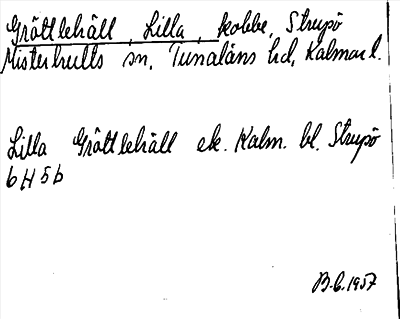 Gröttlehäll, Lilla, kobbe, Strupö
Misterhults sn, Tunaläns hd, Kalmar l.
Lilla Gröttlehäll ek. Kalm. bl. Strupö
6H5b
B.C. 1957